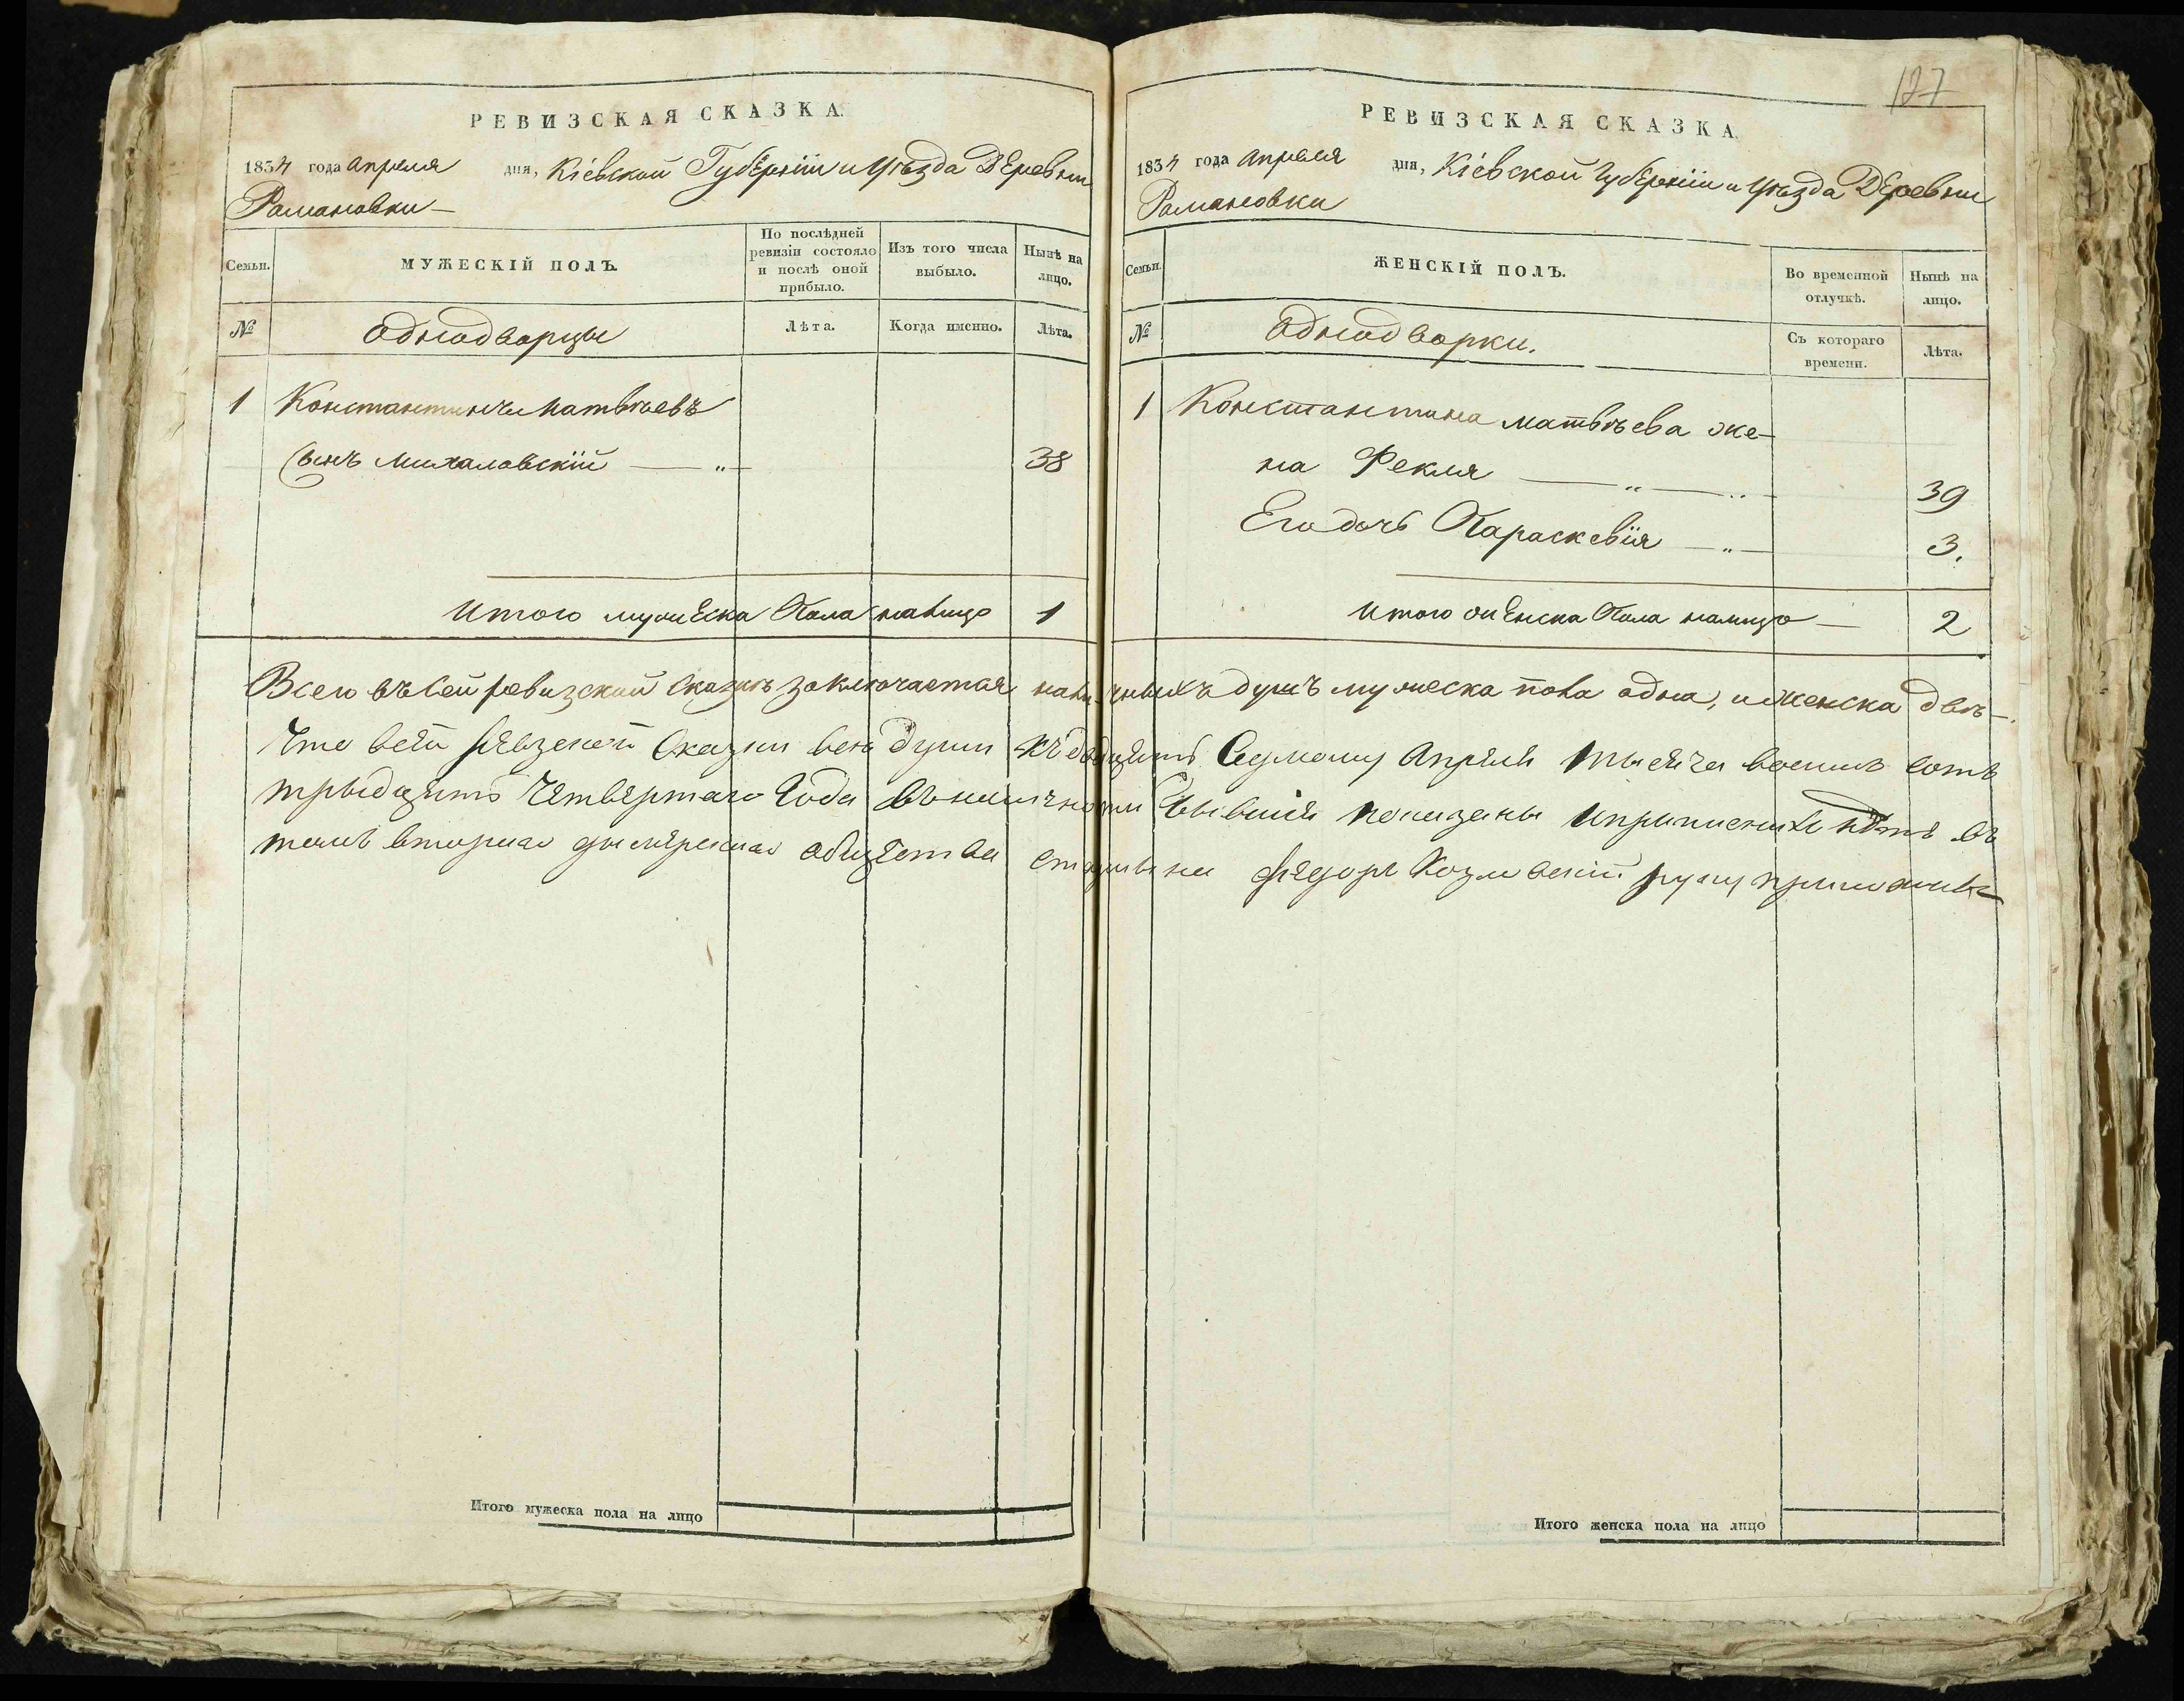 РЕВИЗСКАЯ СКАЗКА.
1834 года Апреля дня, Кіевской Губерніи и Уѣзда Деревни
Романовки
Семьи. МУЖЕСКІЙ ПОЛЪ. По послѣдней ревизіи состояло и послѣ оной прибыло. Изъ того числа выбыло. Нынѣ на лицо.
№ Однодворцы Лѣта. Когда именно. Лѣта.
1 Константинъ Матвѣевъ
Сынъ Михаловскій — „ — 38
Итого мужеска Пола налицо 1
127
РЕВИЗСКАЯ СКАЗКА.
1834 года Апреля дня, Кіевской Губерніи и Уѣзда Деревни
Романовки
Семьи. ЖЕНСКІЙ ПОЛЪ. Во временной отлучкѣ. Нынѣ на лицо.
№ Однодворки. Съ котораго времени. Лѣта.
1 Константина Матвѣева же-
на Фекля — „ — „ — 39
Его дочь Параскевія — „ — 3.
Итого женска Пола налицо — 2
Всего въ сей ревизской Сказкѣ заключается наличныхъ душъ мужеска пола одна, и женска двѣ —.
Что всей ревзской Сказки все души къ двацять Седмому Апреля тысяча восимъ сотъ
трыдцять Четвертаго Года въ наличности бывшія показаны и
тамъ общества Федоръ Козловскій руку приложилъ
Итого мужеска пола на лицо
Итого женска пола на лицо